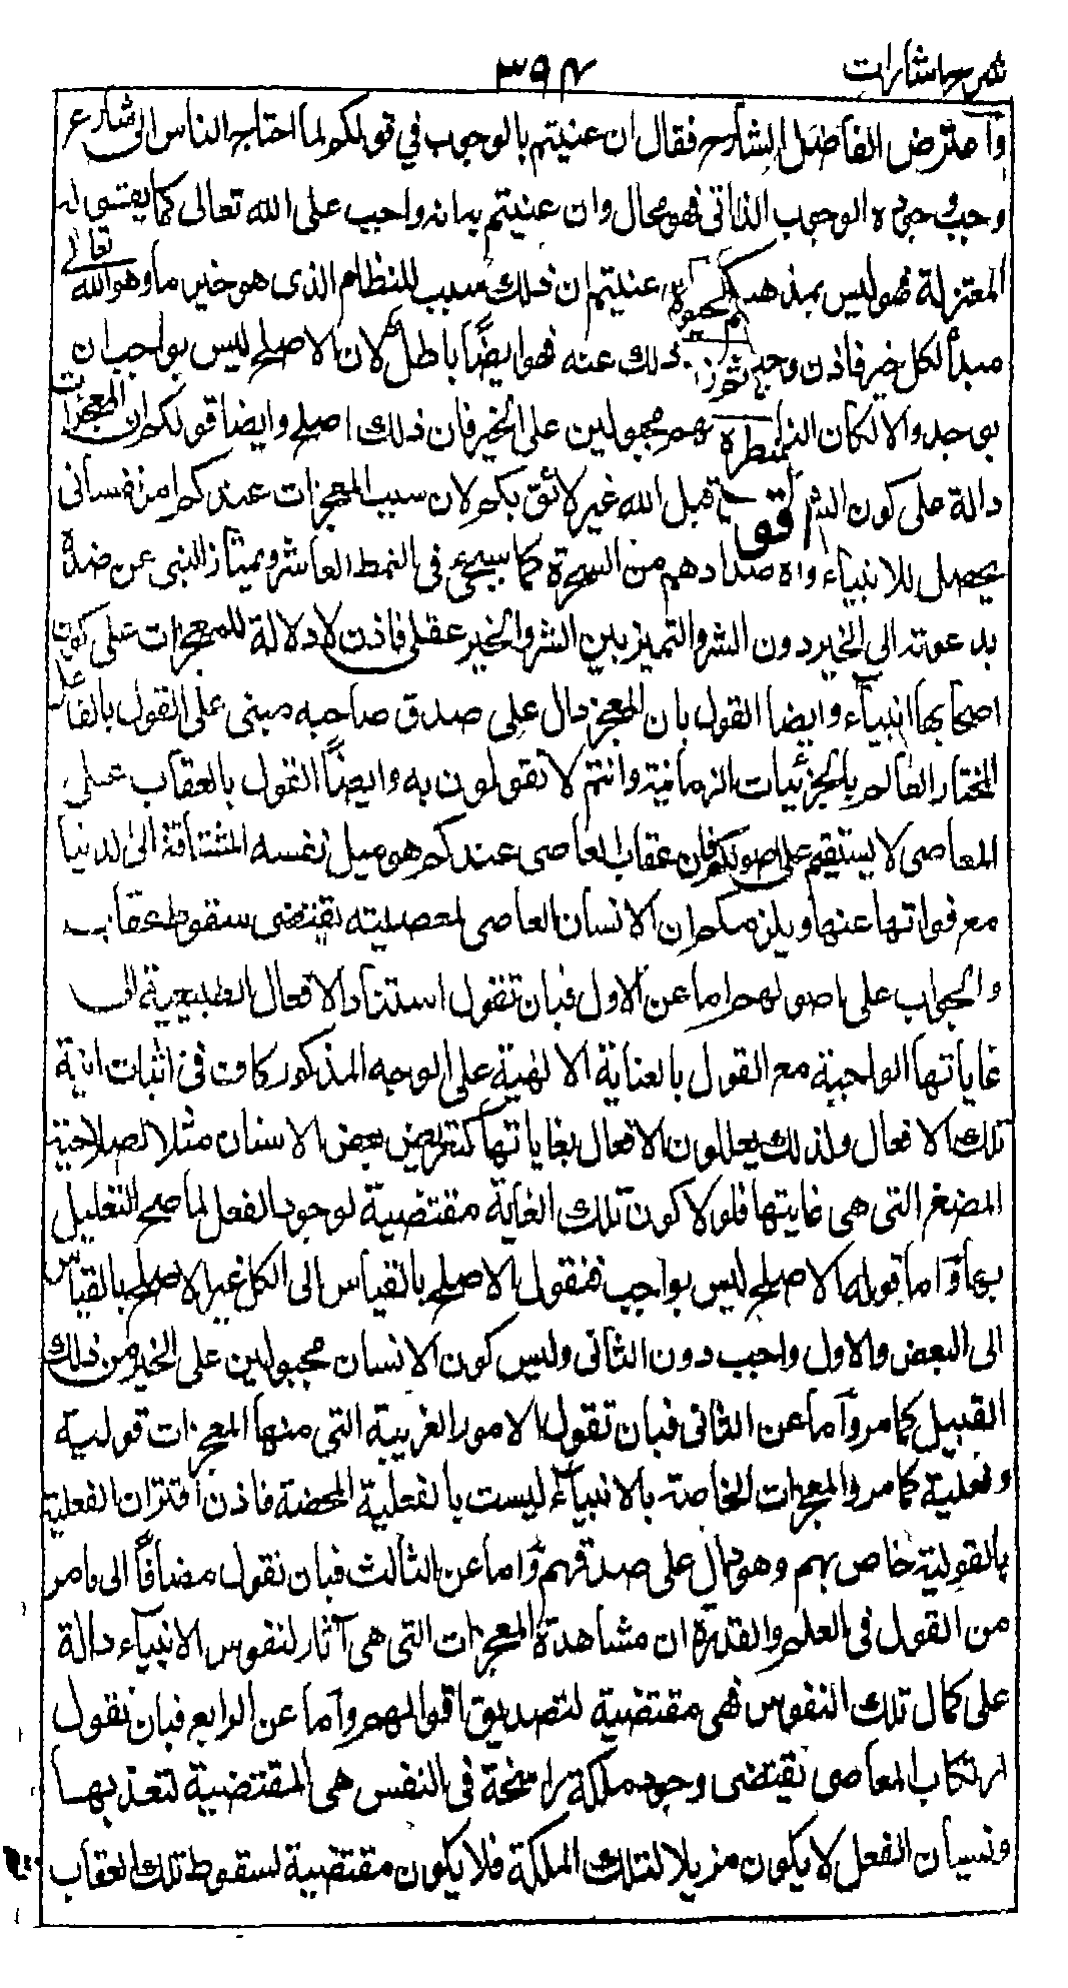 شرح اشارات
۳۹۴
وآعترض الفاضل الشارح فقال ان عنيتم بالوجوب في قولكم لما احتاج الناس الى شارع
وجب وجوده الوجوب الذاتى فهو محال وان عنيتم به انه واجب على الله تعالى كما يقتضى له
المعتزلة فهو ليس بمذهبكم عنيتم ان ذلك سبب للنظام الذى هو خير ما وهو الله تعالى
مبدأ لكل خير فاذن وجب ذلك عنه فهو ايضًا باطل لان الاصلح ليس بواجب ان
يوجد والا لكان الناس كلهم مجبولين على الخير فان ذلك اصلح وايضا قولكم ان المعجزات
دالة على كون الشرع قبل الله غير لائق بكم لان سبب المعجزات عندكم امر نفسانى
يحصل للانبياء واضدادهم من السحرة كما سيجئ فى النمط العاشر ويمتاز النبى عن ضده
بدعوته الى الخير دون الشر والتميز بين الشر والخير عقلى فاذن لا دلالة للمعجزات على كون
اصحابها انبياء وايضا القول بان المعجز دال على صدق صاحبه مبنى على القول بالفاعل
المختار العالم بالجزئيات الزمانية وانتم لا تقولون به وايضًا القول بالعقاب على
المعاصى لا يستقيم على اصولكم فان عقاب العاصى عندكم هو ميل نفسه المشتاقة الى الدنيا
مع فواتها عنها ويلزمكم ان الانسان العاصى لمعصيته يقتضى سقوط عقابه
والجواب على اصولهم اما عن الاول فبان تقول استناد الافعال الطبيعية الى
غاياتها الواجبة مع القول بالعناية الالهية على الوجه المذكور كاف فى اثبات انية
تلك الافعال ولذلك يعللون الافعال بغاياتها كتعريض بعض الاسنان مثلا لصلاحية
المضغ التى هى غايتها فلولا كون تلك الغاية مقتضية لوجود الفعل لما صح التعليل
بها وآما قوله الاصلح ليس بواجب فنقول الاصلح بالقياس الى الكل غير الاصلح بالقياس
الى البعض والاول واجب دون الثانى وليس كون الانسان مجبولين على الخير من ذلك
القبيل كما مر وآما عن الثانى فبان تقول الامور الغريبة التى منها المعجزات قولية
وفعلية كما مر والمعجزات الخاصة بالانبياء ليست بالفعلية المحضة فاذن اقتران الفعلية
بالقولية خاص بهم وهو دال على صدقهم وآما عن الثالث فبان نقول مضافًا الى ما مر
من القول فى العلم والقدرة ان مشاهدة المعجزات التى هى آثار لنفوس الانبياء دالة
على كمال تلك النفوس فهى مقتضية لتصديق اقوالهم وآما عن الرابع فبان نقول
ارتكاب المعاصى يقتضى وجود ملكة راسخة فى النفس هى المقتضية لتعذبها
ونسيان الفعل لا يكون مزيلا لتلك الملكة فلا يكون مقتضية لسقوط تلك العقاب